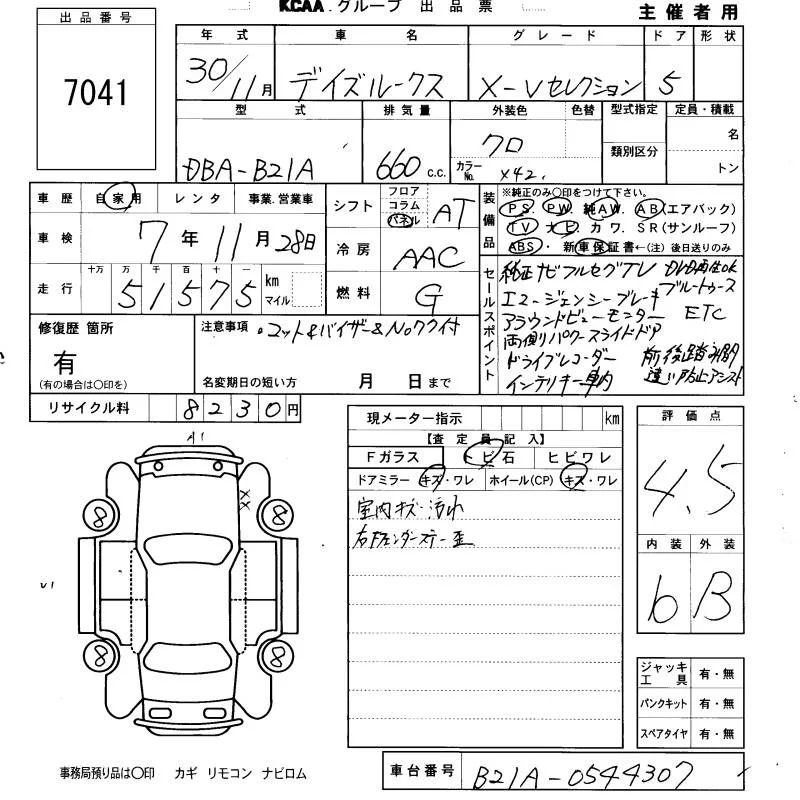 KCAA.グループ 出品票
主催者用
出品番号
7041
年式 車名 グレード ドア 形状
30/11月 デイズルークス X-Vセレクション 5
型式 排気量 外装色 色替 型式指定 定員・積載
DBA-B21A 660 c.c. クロ 類別区分 名
カラーNo. X42. トン
車歴 自家用 レンタ 事業.営業車
車検 7年11月28日
走行 十万 万 千 百 十 一 km マイル
51575
シフト フロア コラム パネル AT
冷房 AAC
燃料 G
装備品 ※純正のみ○印をつけて下さい。
PS. PW. 純AW. AB(エアバック)
TV ナビ カワ. SR(サンルーフ)
ABS・ 新車保証書←(注)後日送りのみ
セールスポイント
純正ナビフルセグTV DVD再生ok
エマージェンシーブレーキ ブルートゥース
アラウンドビューモニター ETC
両側パワースライドドア
ドライブレコーダー
インテリキー
修復歴 箇所
有
(有の場合は○印を)
注意事項
名変期日の短い方 月 日まで
リサイクル料 8230円
現メーター指示 km
【査定員記入】
Fガラス トビ石 ヒビワレ
ドアミラー キズ・ワレ ホイール(CP) キズ・ワレ
室内キズ・汚れ
右Fフェンダーステー歪
評価点
4.5
内装 外装
6 B
A1
XX
8 8
U1
8 8
ジャッキ工具 有・無
パンクキット 有・無
スペアタイヤ 有・無
事務局預り品は○印 カギ リモコン ナビロム
車台番号 B21A-0544307